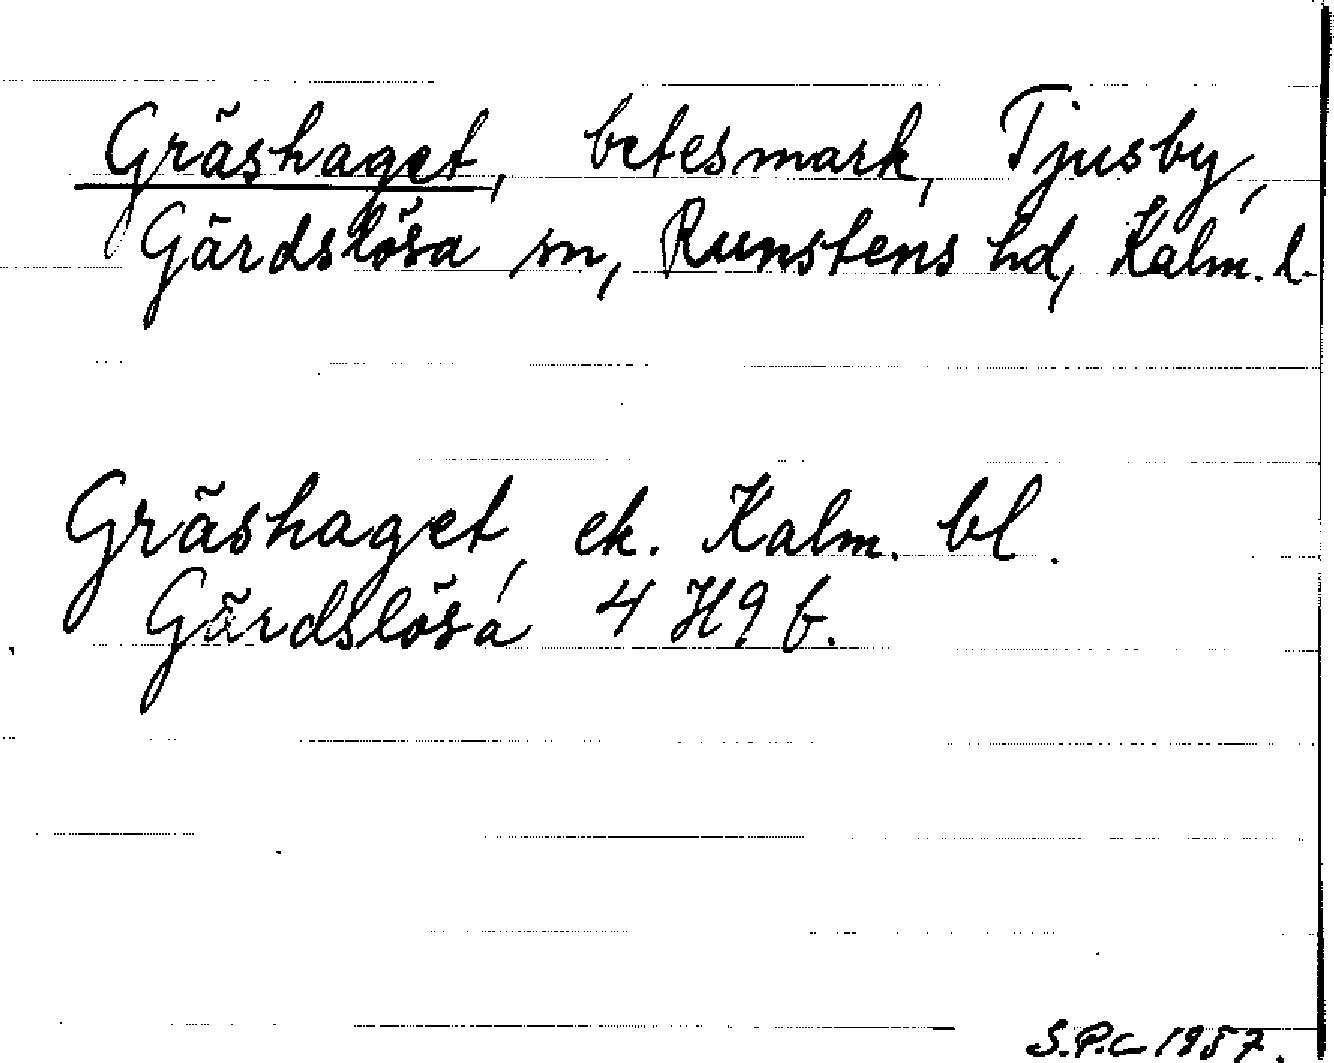 Gräshaget, betesmark, Tjusby,
Gärdslösa sn, Runstens hd, Kalm. l.
Gräshaget, ek. Kalm. bl.
Gärdslösa 4 H9 f.
S.P.C 1957.